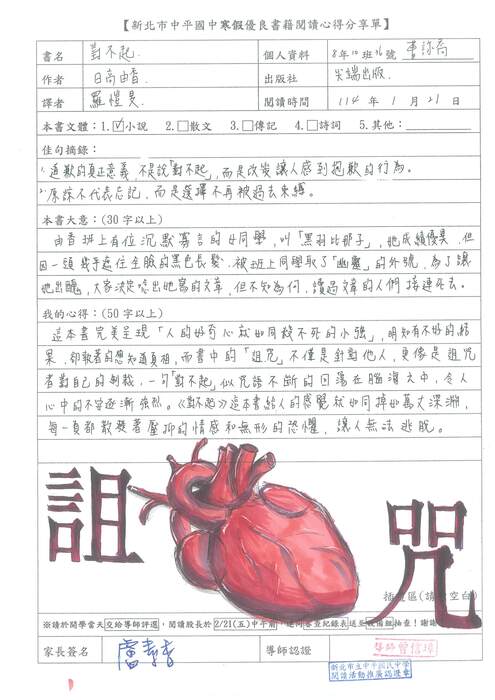 【新北市中平國中寒假優良書籍閱讀心得分享單】
書名 對不起. 個人資料 8年10班36號
作者 日高由香 出版社 尖端出版.
譯者 羅愷旻 閱讀時間 114 年 1 月 21 日
本書文體：1.☑小說 2.□散文 3.□傳記 4.□詩詞 5.其他：
佳句摘錄：
1. 道歉的真正意義,不是說「對不起」,而是改變讓人感到抱歉的行為。
2. 原諒不代表忘記,而是選擇不再被過去束縛。
本書大意：(30 字以上)
由香班上有位沉默寡言的女同學,叫「黑羽比那子」,她成績優異,但
因一頭幾乎遮住全臉的黑色長髮,被班上同學取了「幽靈」的外號,為了讓
她出醜,大家決定唸出她寫的文章,但不知為何,讀過文章的人們接連死去。
我的心得：(50 字以上)
這本書完美呈現「人的好奇心就如同殺不死的小強」,明知有不好的結
果,卻執著的想知道真相,而書中的「詛咒」不僅是針對他人,更像是詛咒
者對自己的制裁,一句「對不起」似咒語不斷的回蕩在腦海之中,令人
心中的不安逐漸強烈。《對不起》這本書給人的感覺就如同掉如萬丈深淵,
每一頁都散發著壓抑的情感和無形的恐懼,讓人無法逃脫。
詛
咒
插畫區(請 空白)
※請於開學當天交給導師評選，閱讀股長於 2/21(五)中午前， 審查紀錄表送至 抽查！謝謝
家長簽名 導師認證 導師曾信璋
新北市立中平國民中學
閱讀活動推廣認證章